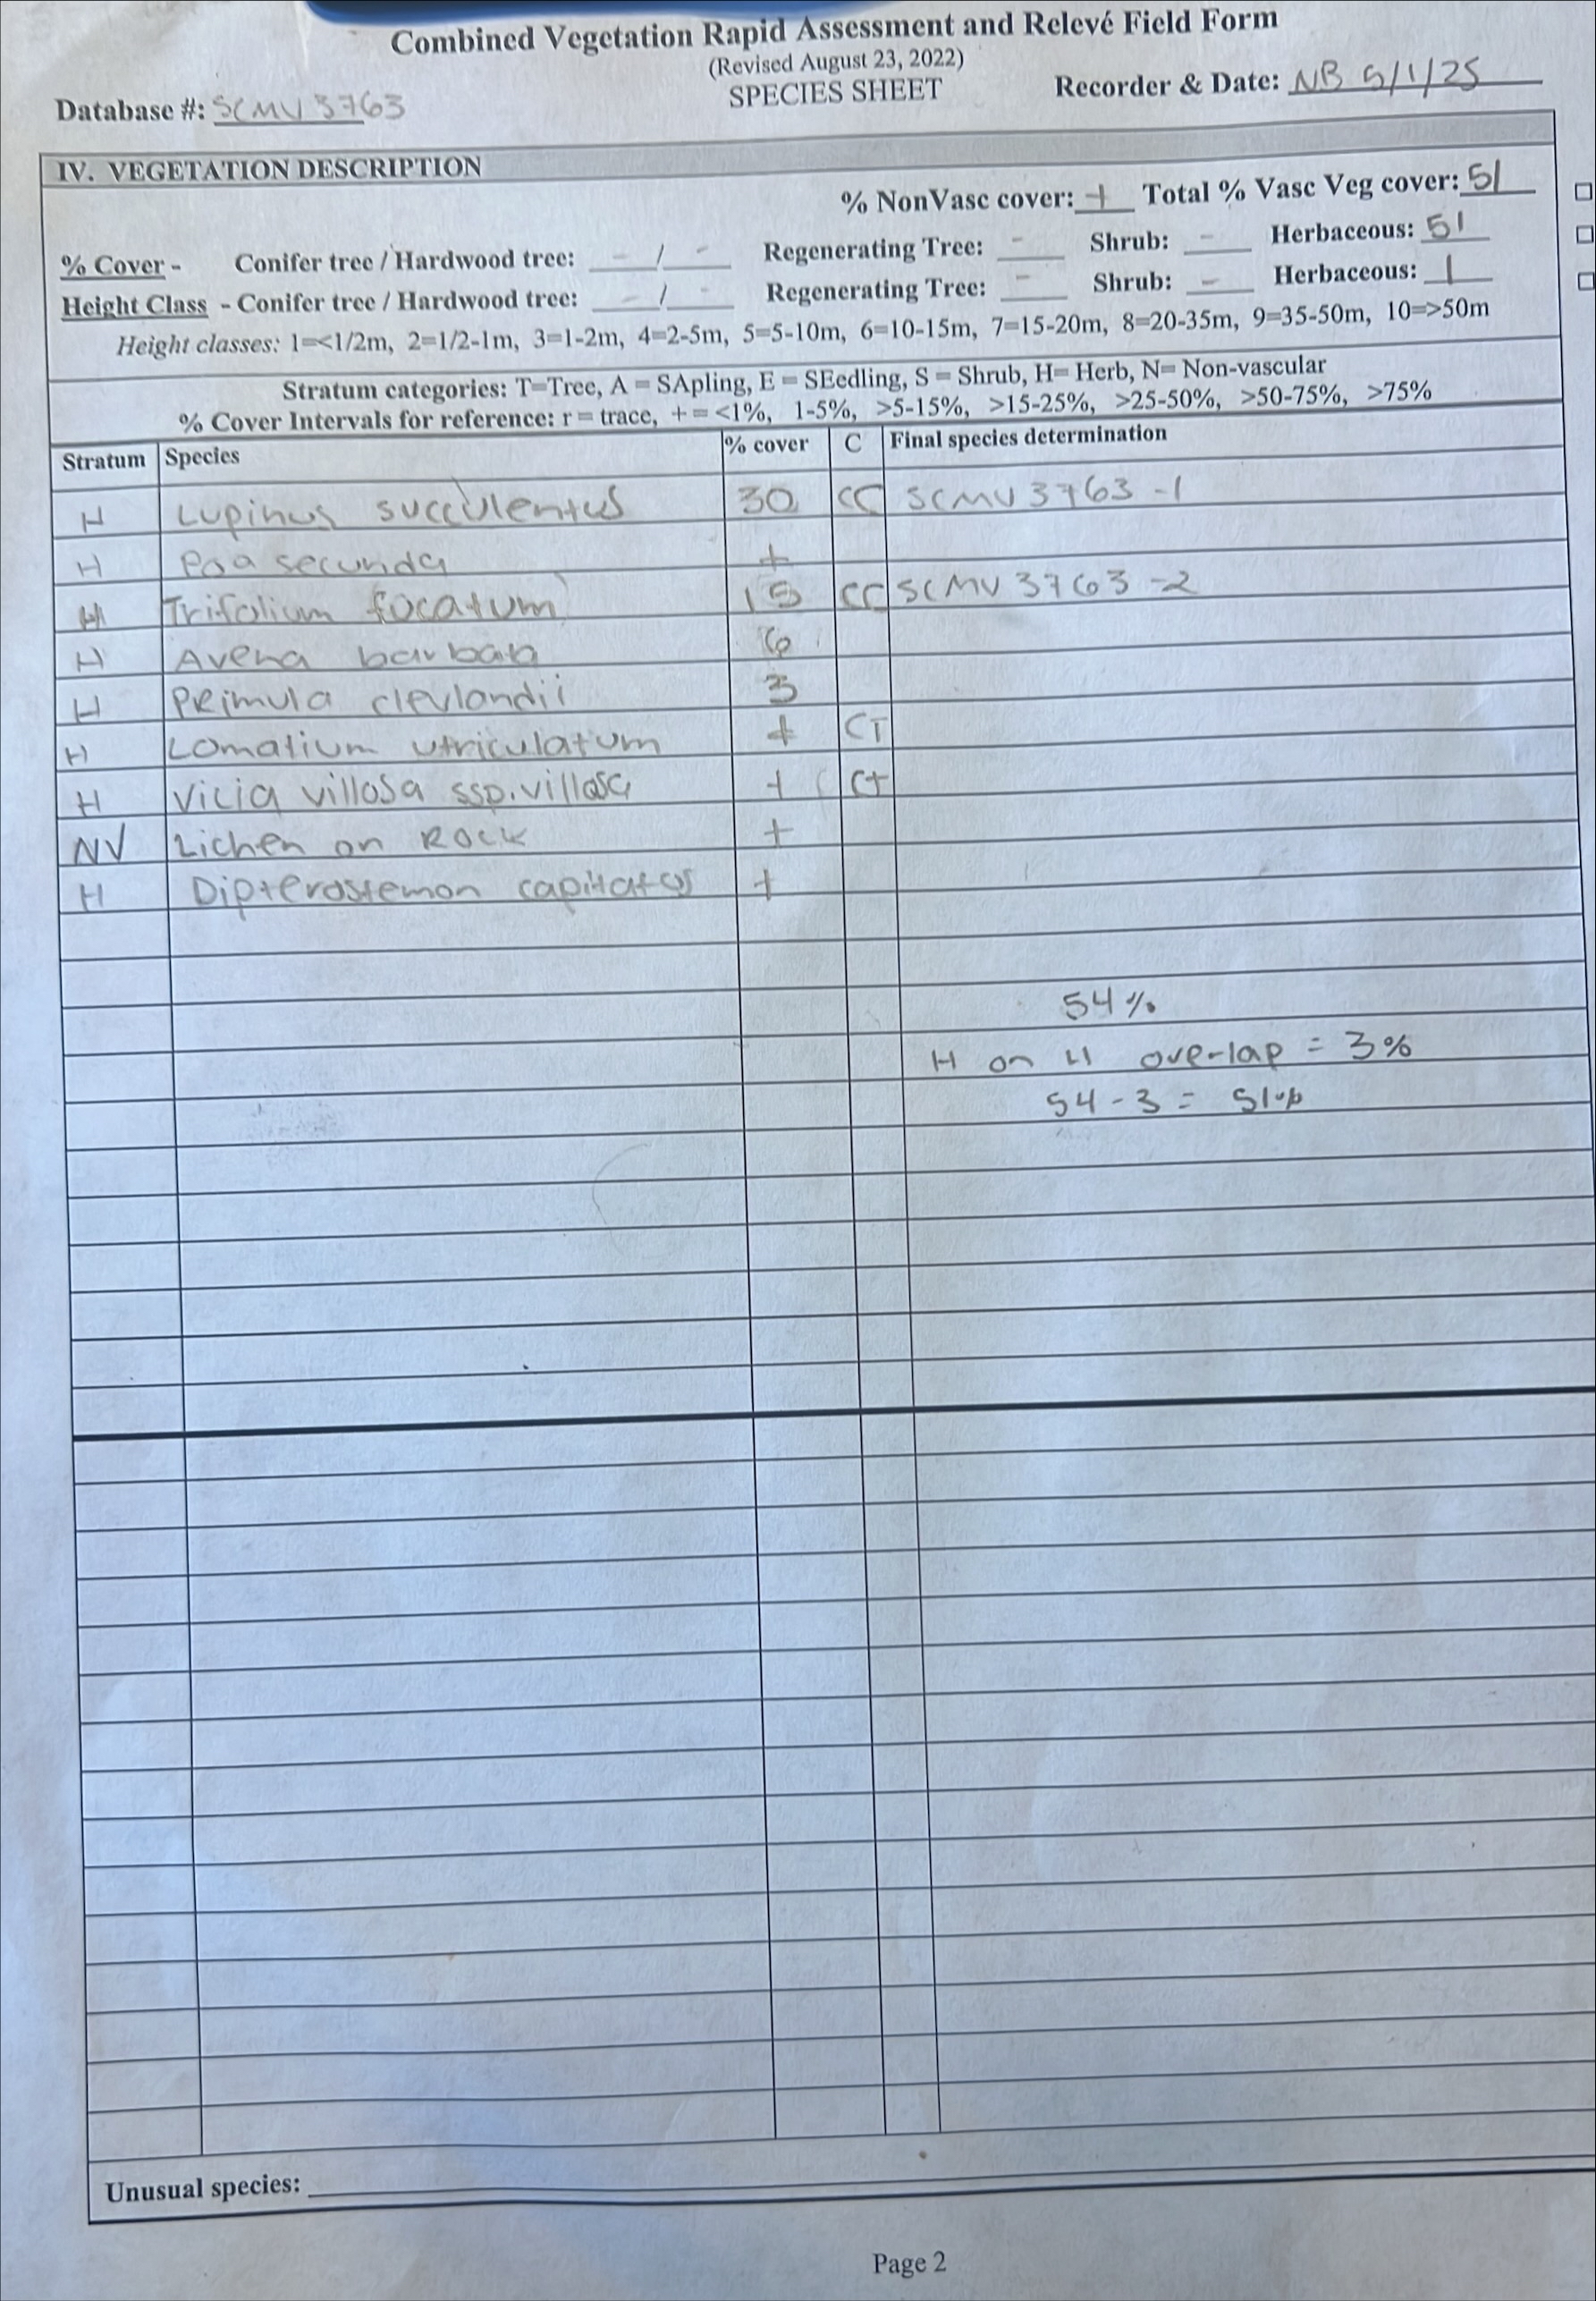 Combined Vegetation Rapid Assessment and Relevé Field Form
(Revised August 23, 2022)
Database #: SCMV3763 SPECIES SHEET Recorder & Date: NB 5/1/25
IV. VEGETATION DESCRIPTION
% NonVasc cover: + Total % Vasc Veg cover: 51
% Cover - Conifer tree / Hardwood tree: - / - Regenerating Tree: - Shrub: - Herbaceous: 51
Height Class - Conifer tree / Hardwood tree: - / - Regenerating Tree: - Shrub: - Herbaceous: 1
Height classes: 1=<1/2m, 2=1/2-1m, 3=1-2m, 4=2-5m, 5=5-10m, 6=10-15m, 7=15-20m, 8=20-35m, 9=35-50m, 10=>50m
Stratum categories: T=Tree, A = SApling, E = SEedling, S = Shrub, H= Herb, N= Non-vascular
% Cover Intervals for reference: r = trace, + = <1%, 1-5%, >5-15%, >15-25%, >25-50%, >50-75%, >75%
Stratum Species % cover C Final species determination
H Lupinus succulentus 30 CC SCMV3763-1
H Poa secunda +
H Trifolium fucatum 15 CC SCMV3763-2
H Avena barbata 6
H Primula clevlandii 3
H Lomatium utriculatum + CT
H Vicia villosa ssp. villosa + CT
NV Lichen on Rock +
H Dipterostemon capitatus +
54%
H on H overlap = 3%
54 - 3 = 51%
Unusual species:
Page 2